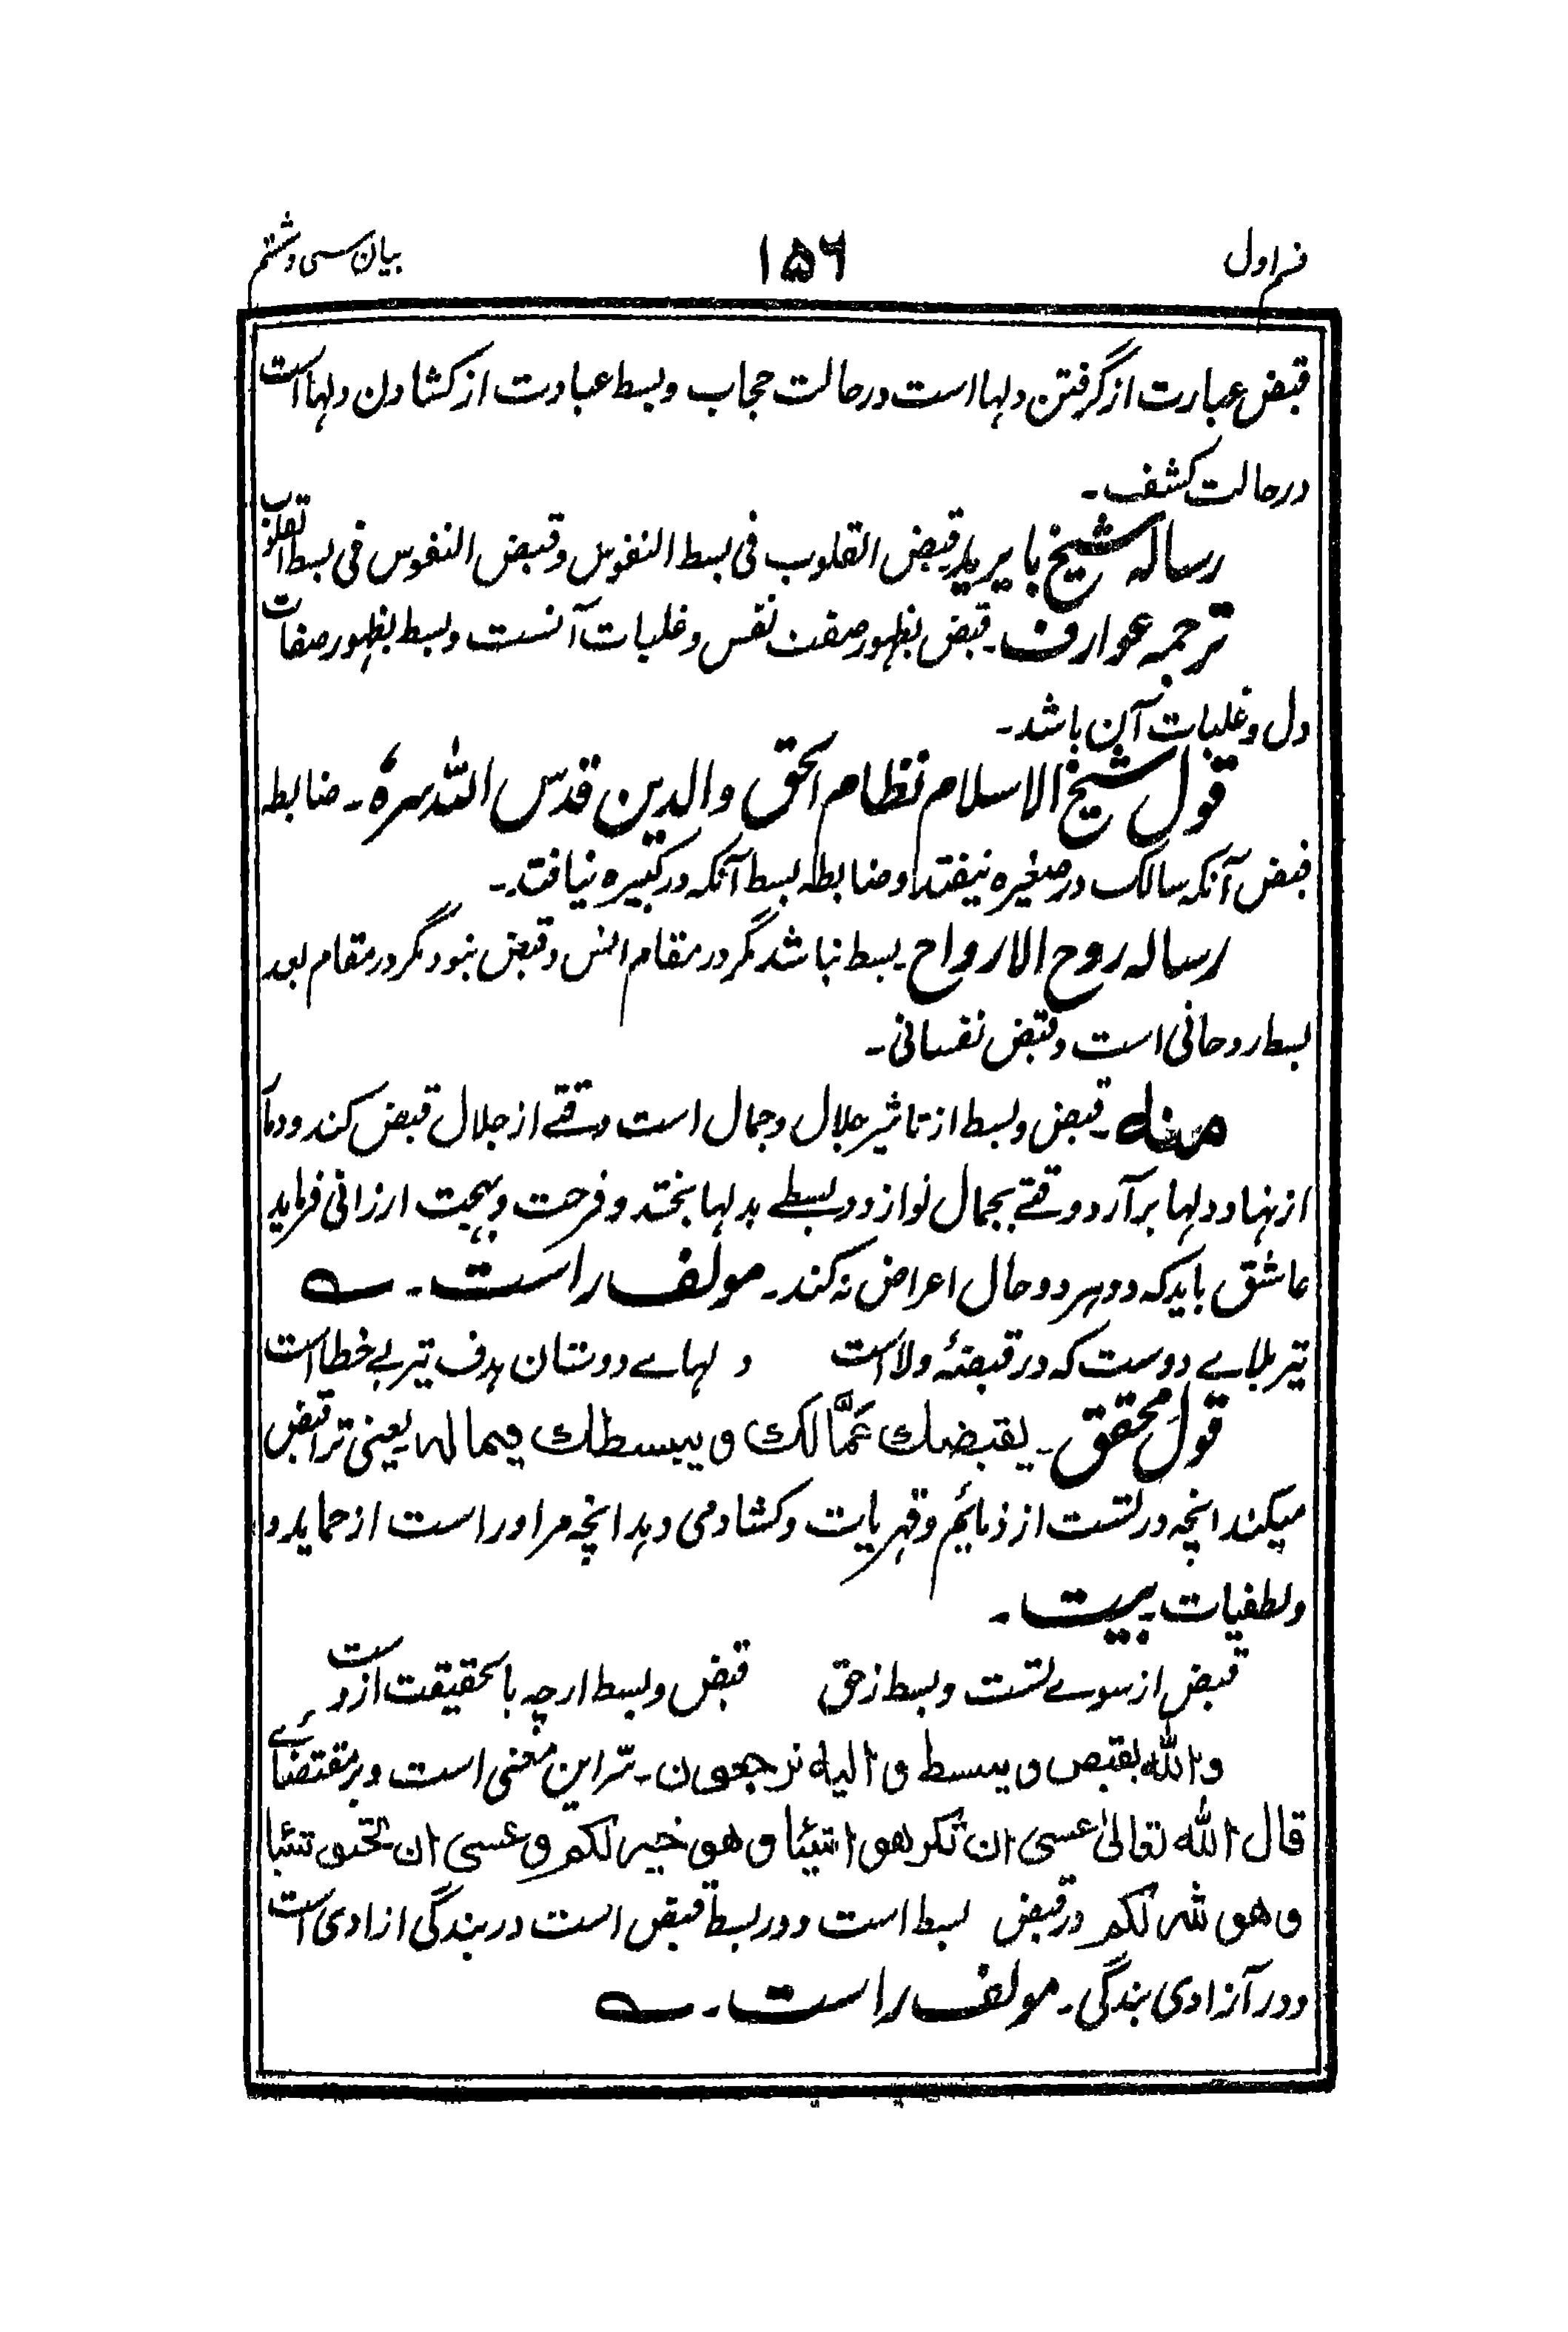 قسم اول ۱۵۶ بیان سی و ششم
قبض عبارت از گرفتن دلہا است در حالت حجاب و بسط عبادت از کشادن دلہا است
در حالت کشف۔
رسالہ شیخ بایزید قبض القلوب فی بسط النفوس و قبض النفوس فی بسط القلوب
ترجمہ عوارف۔ قبض بظہور صفت نفس و غلبات آنست و بسط بظہور صفات
دل و غلبات آن باشد۔
قول شیخ الاسلام نظام الحق والدین قدس اللہ سرہٗ۔ ضابطہ
قبض آنکہ سالک در صغیرہ نیفتد و ضابطہ بسط آنکہ در کبیرہ نیافتد۔
رسالہ روح الارواح بسط نباشد مگر در مقام انس و قبض نبود مگر در مقام بعد
بسط روحانی است و قبض نفسانی۔
منہ۔ قبض و بسط از تاثیر جلال و جمال است وقتے از جلال قبض کند و دمار
از نہاد دلہا برآرد وقتے بجمال نوازد و بسطے بدلہا بخشد و فرحت و بہجت ارزانی فرماید
عاشق باید کہ دوہر دو حال اعراض نہ کند۔ مولف راست۔ ؎
تیر بلاے دوست کہ در قبضۂ ولا است دلہاے دوستان ہدف تیر بے خطا است
قول محقق۔ یقبضك عمّا لك و یبسطك فیما لہ یعنی ترا قبض
میکند انچہ در تست از ذمایم و قہریات و کشاد می دہد انچہ مر او راست از حماید و
و لطفیات بیت۔
قبض از سوے تست و بسط ز حق قبض و بسط ارچہ با لحقیقت ازوست
و اللہ یقبض و یبسط و الیہ ترجعون۔ سرّ این معنی است و بر مقتضائے
قال اللہ تعالیٰ عسی ان تکرهوا شیئا و هو خیر لکم و عسی ان تحبو شیئا
و هو شر لکم در قبض بسط است و در بسط قبض است در بندگی ازادی است
و در آزادی بندگی۔ مولف راست۔ ؎